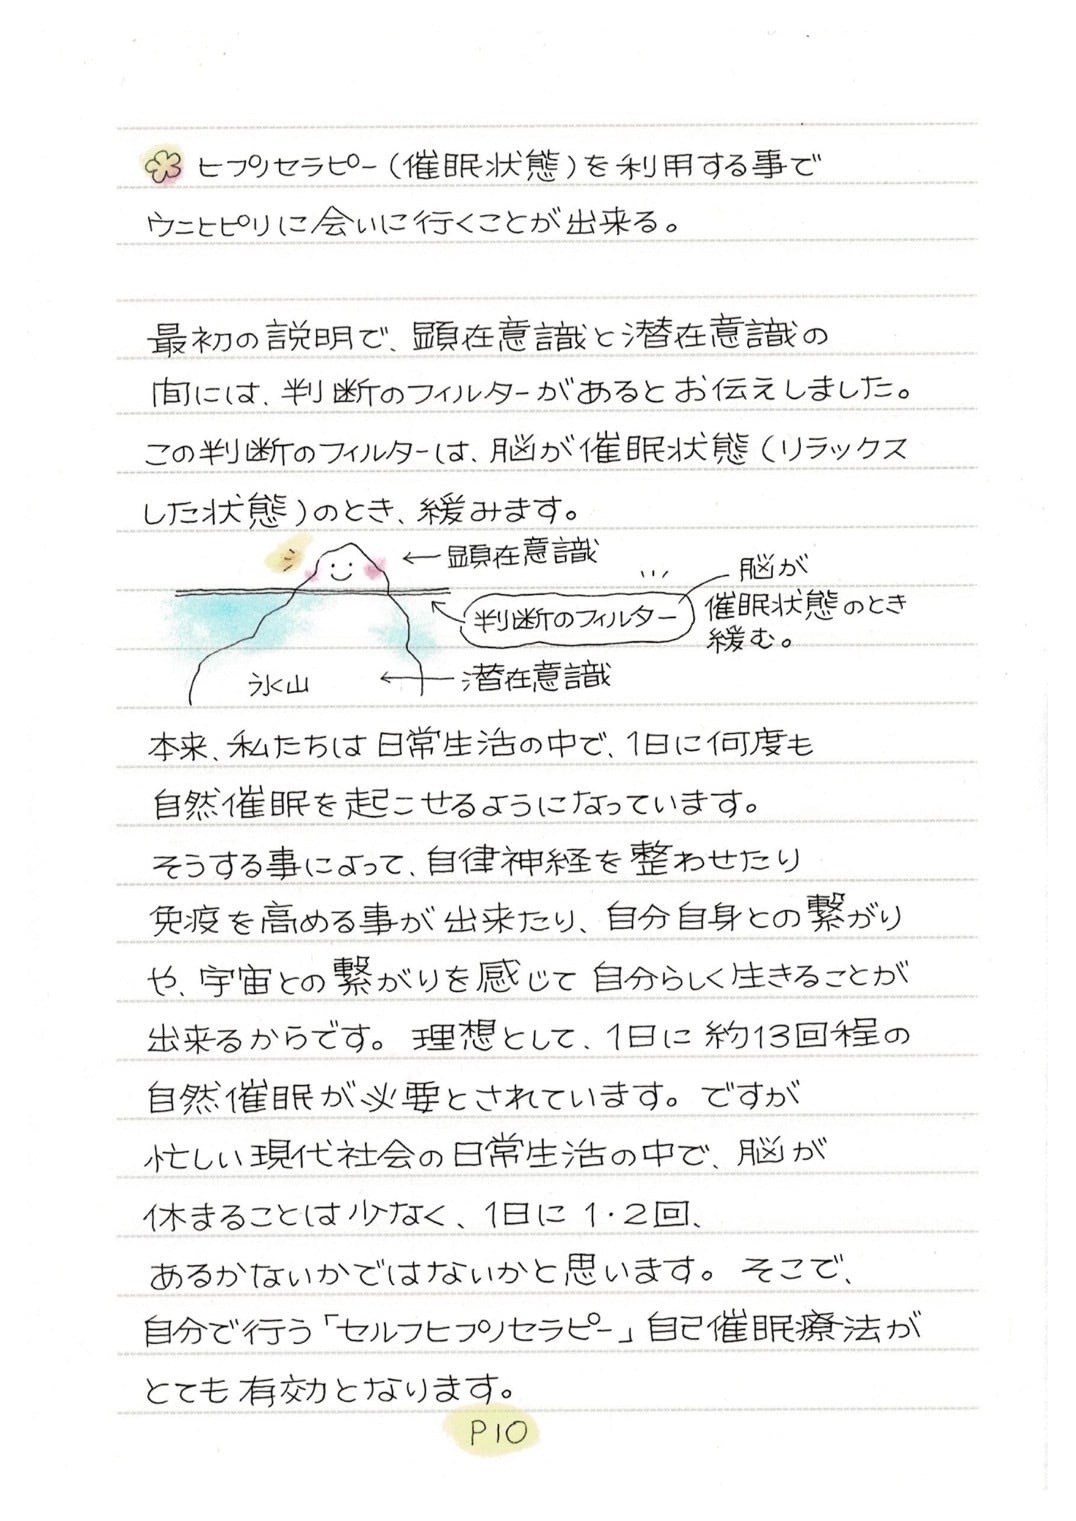 ヒプノセラピー(催眠状態)を利用する事で
ウニヒピリに会いに行くことが出来る。
最初の説明で、顕在意識と潜在意識の
間には、判断のフィルターがあるとお伝えしました。
この判断のフィルターは、脳が催眠状態(リラックス
した状態)のとき、緩みます。
顕在意識
脳が
判断のフィルター
催眠状態のとき
緩む。
氷山
潜在意識
本来、私たちは日常生活の中で、1日に何度も
自然催眠を起こせるようになっています。
そうする事によって、自律神経を整わせたり
免疫を高める事が出来たり、自分自身との繋がり
や、宇宙との繋がりを感じて自分らしく生きることが
出来るからです。理想として、1日に約13回程の
自然催眠が必要とされています。ですが
忙しい現代社会の日常生活の中で、脳が
休まることは少なく、1日に1・2回、
あるかないかではないかと思います。そこで、
自分で行う「セルフヒプノセラピー」自己催眠療法が
とても有効となります。
P10